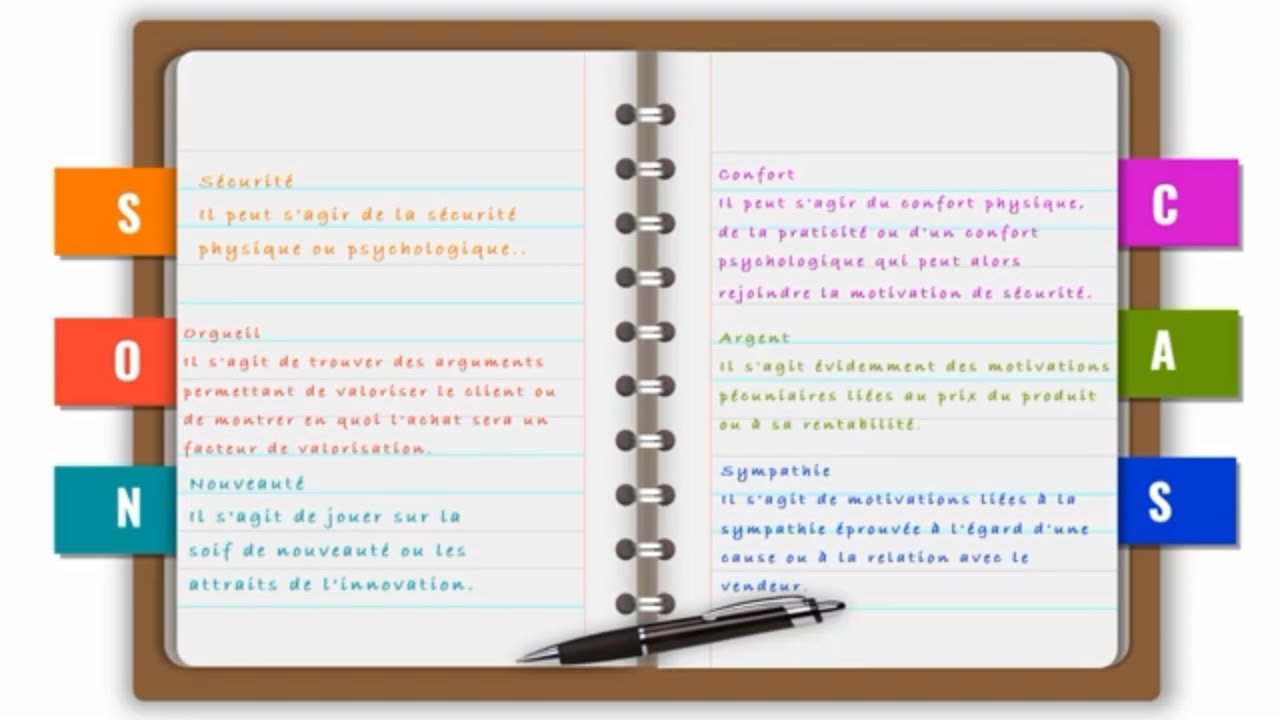 S
Sécurité
Il peut s'agir de la sécurité
physique ou psychologique..
O
Orgueil
Il s'agit de trouver des arguments
permettant de valoriser le client ou
de montrer en quoi l'achat sera un
facteur de valorisation.
N
Nouveauté
Il s'agit de jouer sur la
soif de nouveauté ou les
attraits de l'innovation.
C
Confort
Il peut s'agir du confort physique,
de la praticité ou d'un confort
psychologique qui peut alors
rejoindre la motivation de sécurité.
A
Argent
Il s'agit évidemment des motivations
pécuniaires liées au prix du produit
ou à sa rentabilité.
S
Sympathie
Il s'agit de motivations liées à la
sympathie éprouvée à l'égard d'une
cause ou à la relation avec le
vendeur.